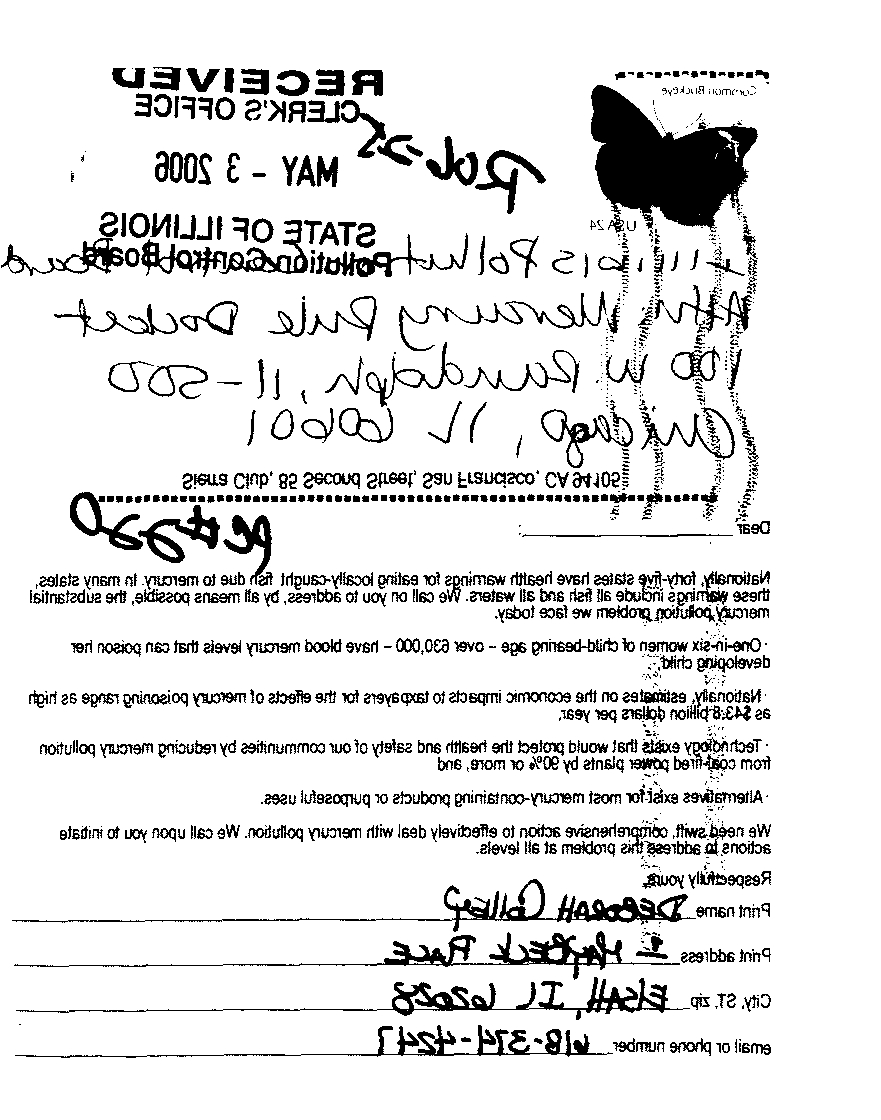 RECEIVED
CLERK'S OFFICE
MAY - 3 2006
STATE OF ILLINOIS
Pollution Control Board
Common Buckeye
USA 24
R06-25
Illinois Pollution Control Board
Attn: Mercury Rule Docket
100 W. Randolph, 11-500
Chicago, IL 60601
Sierra Club, 85 Second Street, San Francisco, CA 94105
PC#220
Dear
Nationally, forty-five states have health warnings for eating locally-caught fish due to mercury. In many states,
these warnings include all fish and all waters. We call on you to address, by all means possible, the substantial
mercury pollution problem we face today.
· One-in-six women of child-bearing age – over 630,000 – have blood mercury levels that can poison her
developing child,
· Nationally, estimates on the economic impacts to taxpayers for the effects of mercury poisoning range as high
as $43.8 billion dollars per year,
· Technology exists that would protect the health and safety of our communities by reducing mercury pollution
from coal-fired power plants by 90% or more, and
· Alternatives exist for most mercury-containing products or purposeful uses.
We need swift, comprehensive action to effectively deal with mercury pollution. We call upon you to initiate
actions to address this problem at all levels.
Respectfully yours,
Print name DEBORAH COLLEY
Print address MAYBECK PLACE
City, ST, zip ELSAH, IL 62028
email or phone number 618-374-4247